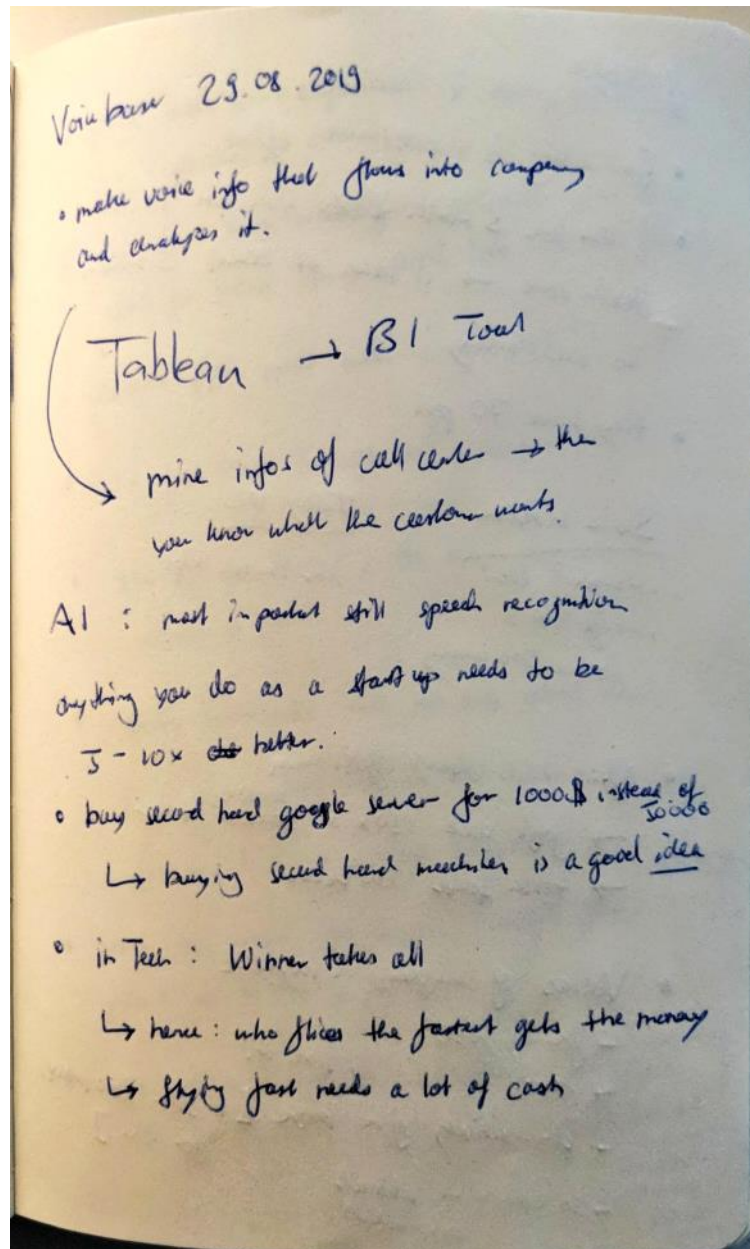 Voicebase 29.08.2019
• make voice info that flows into company
and analyzes it.
Tableau → BI Tool
mine infos of call center → then
you know what the customer wants.
AI : most important still speech recognition
anything you do as a start up needs to be
5-10x better.
• buy second hand google server for 1000$ instead of
50000
↳ buying second hand machines is a good idea
• in Tech : Winner takes all
↳ hence : who flies the fastest gets the money
↳ flying fast needs a lot of cash